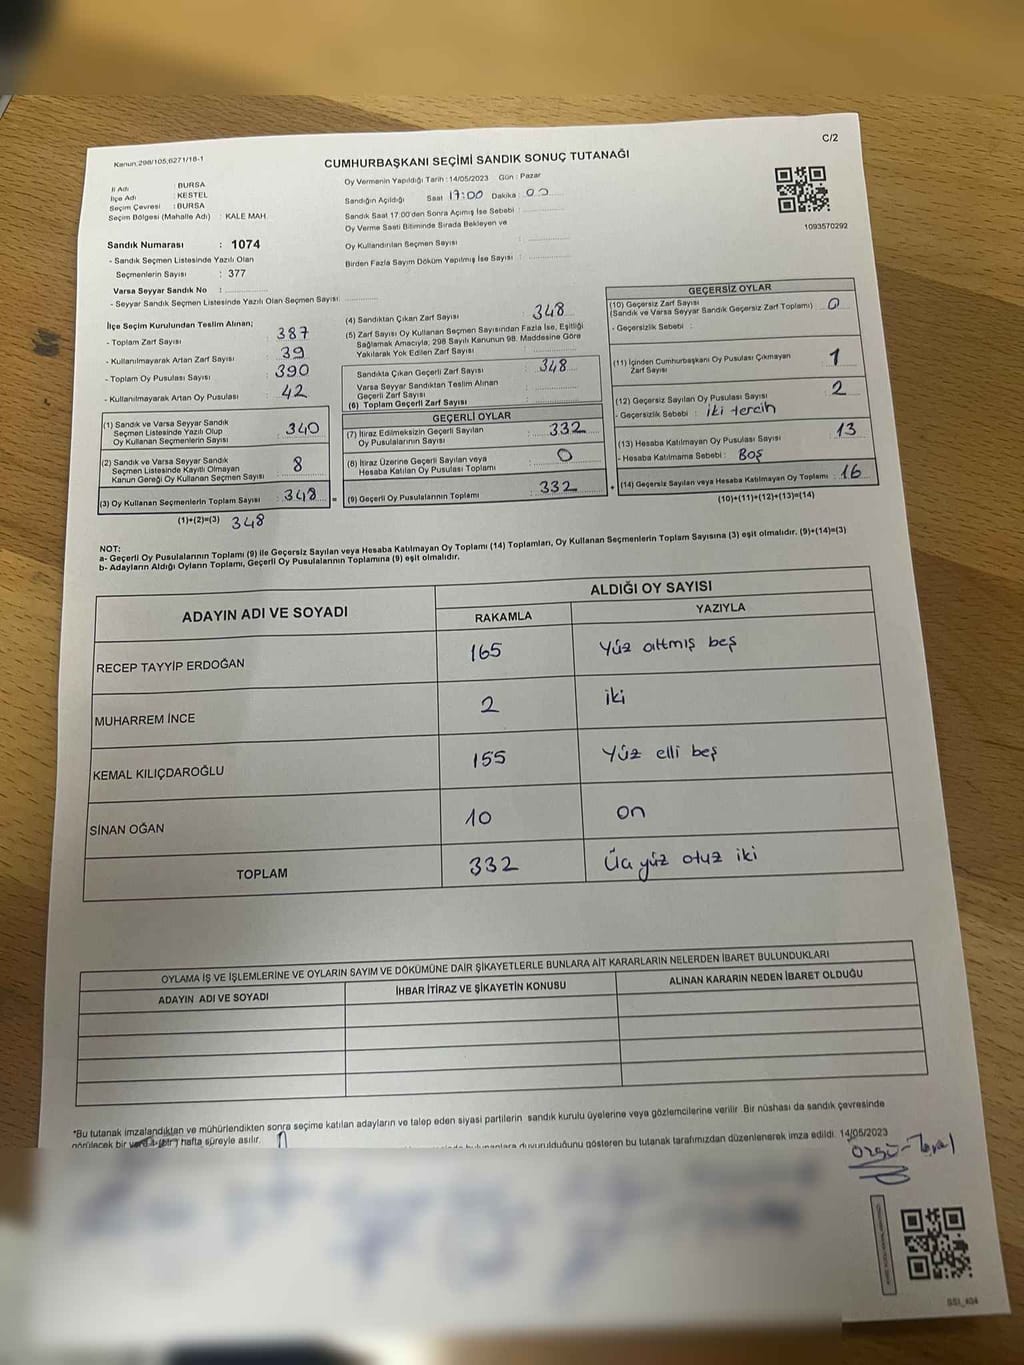 Kanun 298/105,6271/18-1
C/2
CUMHURBAŞKANI SEÇİMİ SANDIK SONUÇ TUTANAĞI
İl Adı : BURSA
İlçe Adı : KESTEL
Seçim Çevresi : BURSA
Seçim Bölgesi (Mahalle Adı) : KALE MAH.
Oy Vermenin Yapıldığı Tarih : 14/05/2023 Gün : Pazar
Sandığın Açıldığı Saat 17:00 Dakika : 00
Sandık Saat 17:00'den Sonra Açımış İse Sebebi :
Oy Verme Saati Bitiminde Sırada Bekleyen ve
Oy Kullandırılan Seçmen Sayısı :
Birden Fazla Sayım Döküm Yapılmış İse Sayısı :
1093570292
Sandık Numarası : 1074
- Sandık Seçmen Listesinde Yazılı Olan
Seçmenlerin Sayısı : 377
Varsa Seyyar Sandık No :
- Seyyar Sandık Seçmen Listesinde Yazılı Olan Seçmen Sayısı:
İlçe Seçim Kurulundan Teslim Alınan;
- Toplam Zarf Sayısı : 387
- Kullanılmayarak Artan Zarf Sayısı : 39
- Toplam Oy Pusulası Sayısı : 390
- Kullanılmayarak Artan Oy Pusulası : 42
(1) Sandık ve Varsa Seyyar Sandık
Seçmen Listesinde Yazılı Olup
Oy Kullanan Seçmenlerin Sayısı : 340
(2) Sandık ve Varsa Seyyar Sandık
Seçmen Listesinde Kayıtlı Olmayan
Kanun Gereği Oy Kullanan Seçmen Sayısı : 8
(3) Oy Kullanan Seçmenlerin Toplam Sayısı : 348 =
(1)+(2)=(3) 348
(4) Sandıktan Çıkan Zarf Sayısı : 348
(5) Zarf Sayısı Oy Kullanan Seçmen Sayısından Fazla İse, Eşitliği
Sağlamak Amacıyla; 298 Sayılı Kanunun 98. Maddesine Göre
Yakılarak Yok Edilen Zarf Sayısı :
Sandıkta Çıkan Geçerli Zarf Sayısı : 348
Varsa Seyyar Sandıktan Teslim Alınan
Geçerli Zarf Sayısı :
(6) Toplam Geçerli Zarf Sayısı :
GEÇERLİ OYLAR
(7) İtiraz Edilmeksizin Geçerli Sayılan
Oy Pusulalarının Sayısı : 332
(8) İtiraz Üzerine Geçerli Sayılan veya
Hesaba Katılan Oy Pusulası Toplamı : 0
(9) Geçerli Oy Pusulalarının Toplamı : 332 +
GEÇERSİZ OYLAR
(10) Geçersiz Zarf Sayısı
(Sandık ve Varsa Seyyar Sandık Geçersiz Zarf Toplamı) : 0
- Geçersizlik Sebebi :
(11) İçinden Cumhurbaşkanı Oy Pusulası Çıkmayan
Zarf Sayısı : 1
(12) Geçersiz Sayılan Oy Pusulası Sayısı : 2
- Geçersizlik Sebebi : iki tercih
(13) Hesaba Katılmayan Oy Pusulası Sayısı : 13
- Hesaba Katılmama Sebebi : Boş
(14) Geçersiz Sayılan veya Hesaba Katılmayan Oy Toplamı : 16
(10)+(11)+(12)+(13)=(14)
NOT:
a- Geçerli Oy Pusulalarının Toplamı (9) ile Geçersiz Sayılan veya Hesaba Katılmayan Oy Toplamı (14) Toplamları, Oy Kullanan Seçmenlerin Toplam Sayısına (3) eşit olmalıdır. (9)+(14)=(3)
b- Adayların Aldığı Oyların Toplamı, Geçerli Oy Pusulalarının Toplamına (9) eşit olmalıdır.
ADAYIN ADI VE SOYADI
ALDIĞI OY SAYISI
RAKAMLA YAZIYLA
RECEP TAYYİP ERDOĞAN 165 Yüz altmış beş
MUHARREM İNCE 2 iki
KEMAL KILIÇDAROĞLU 155 Yüz elli beş
SİNAN OĞAN 10 on
TOPLAM 332 Üç yüz otuz iki
OYLAMA İŞ VE İŞLEMLERİNE VE OYLARIN SAYIM VE DÖKÜMÜNE DAİR ŞİKAYETLERLE BUNLARA AİT KARARLARIN NELERDEN İBARET BULUNDUKLARI
ADAYIN ADI VE SOYADI İHBAR İTİRAZ VE ŞİKAYETİN KONUSU ALINAN KARARIN NEDEN İBARET OLDUĞU
*Bu tutanak imzalandıktan ve mühürlendikten sonra seçime katılan adayların ve talep eden siyasi partilerin sandık kurulu üyelerine veya gözlemcilerine verilir. Bir nüshası da sandık çevresinde
görülecek bir yerde 1 (bir) hafta süreyle asılır. duyurulduğunu gösteren bu tutanak tarafımızdan düzenlenerek imza edildi. 14/05/2023